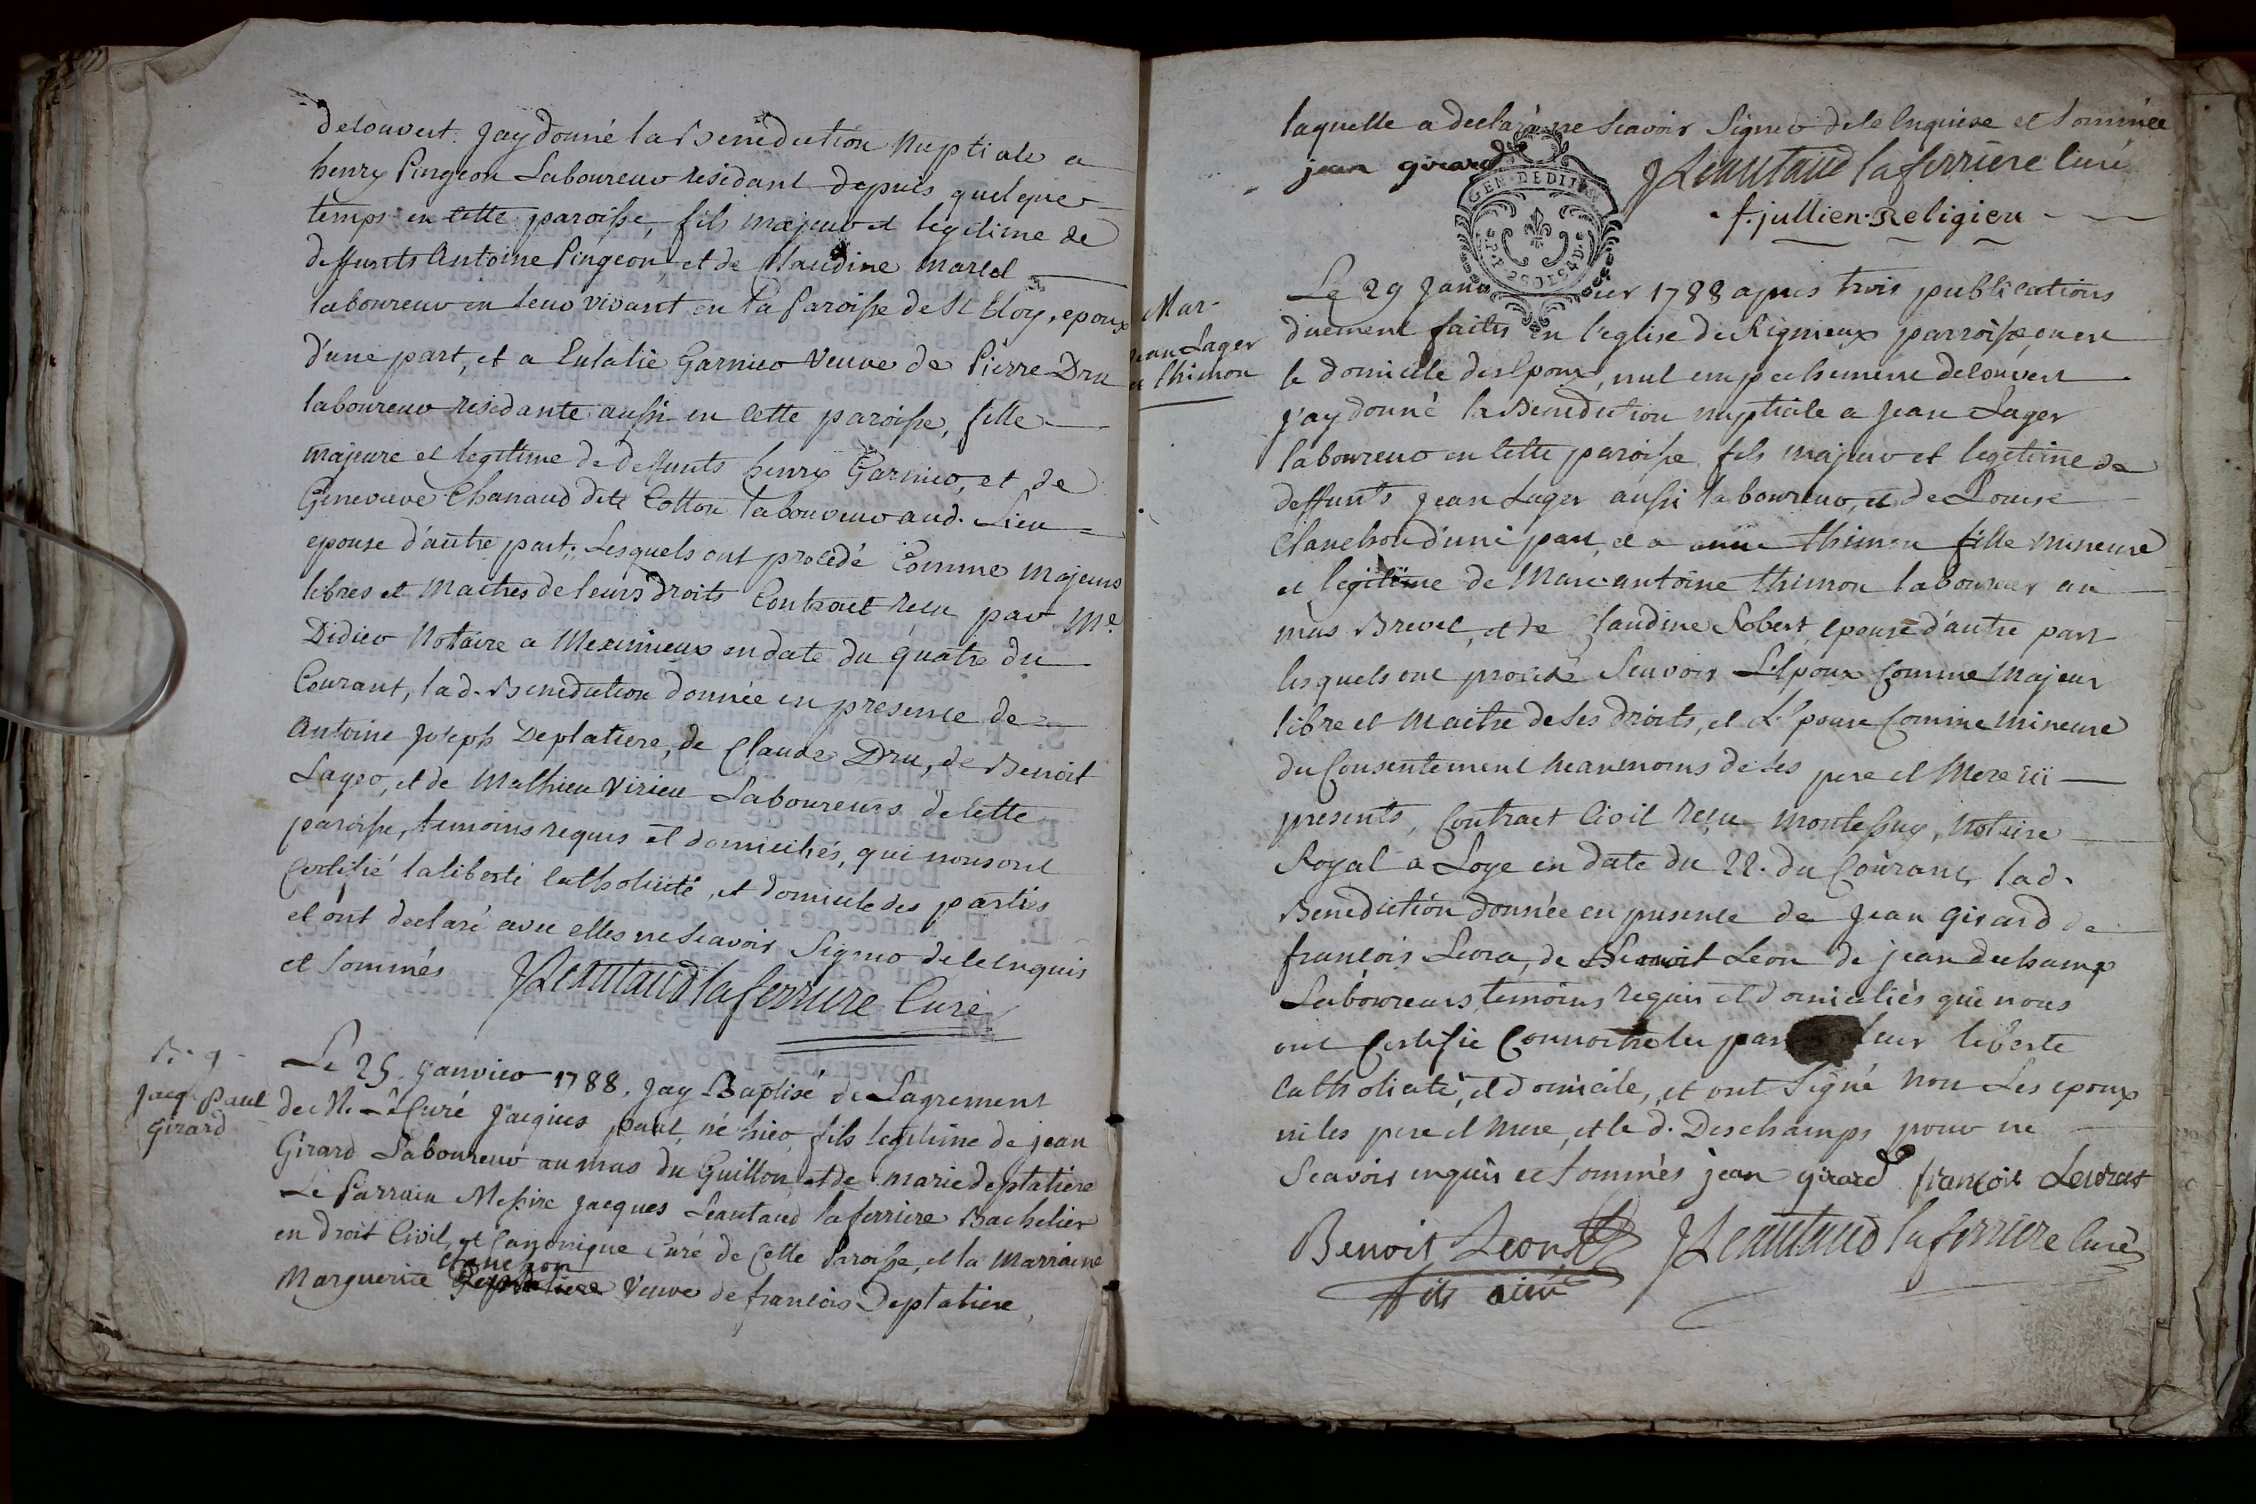 decouvert. Jay donné la Benediction Nuptiale a
henry Pingeon Laboureur residant depuis quelque
temps en cette paroisse, fils majeur et legitime de
deffunts Antoine Pingeon, et de Claudine Marel
laboureur en leur vivant en la Paroisse de St Eloy, epoux
d'une part, et a Eulalie Garnier Veuve de Pierre Dru
laboureur residante aussi en cette paroisse, fille
majeure et legitime de deffunts henry Garnier, et de
Genevieve Chanaud dite Cotton laboureur aud. Lieu
epouse d'autre part; Lesquels ont procédé Comme Majeurs
libres et Maitres de leurs droits Contract reçu par Me
Didier Notaire a Meximieux en date du quatre du
Courant, lad. Benediction donnée en presence de
Antoine Joseph Deplatiere, de Claude Dru, de Benoit
Layer, et de Mathieu Virieu Laboureurs de cette
paroisse, temoins requis et domiciliés, qui nous ont
Certifié la liberté Catholicité, et domicile des parties
et ont declaré avec elles ne scavoir Signer de ce Enquis
et sommés JLeautaud laferriere Curé
B. 9
Jacq. Paul
Girard
Le 25. Janvier 1788. Jay Baptisé de Lagrement
de M. Le Curé Jacques paul, né hier, fils legitime de jean
Girard Laboureur au mas du Guillon, et de marie deplatiere
Le Parrain Messire Jacques Leautaud laferriere Bachelier
en droit Civil, et Canonique Curé de Cette Paroisse, et la Marraine
Clanchon
Marguerite Deplatiere Veuve de francois Deplatiere,
laquelle a declaré ne Scavoir Signer de ce Enquise et sommée
jean girard JLeautaud laferriere Curé
f. jullien. Religieu
GEN. DEDIT
Mar.
Jean Lager
et thimon
Le 29 Janvier 1788 apres trois publications
duement faites en l'eglise de Rignieux parroisse, ou est
le domicile des Epoux, nul empechement decouvert
J'ay donné la Benediction nuptiale a Jean Lager
laboureur en cette paroisse, fils majeur et legitime de
deffunts Jean Lager aussi laboureur, et de Louise
Clanchon d'une part, et a anne thimon fille mineure
et legitime de Marc antoine thimon laboureur au
mas Brevet, et de Claudine Robert, epouse d'autre part
lesquels ont procédé Scavoir L'Epoux Comme Majeur
libre et Maitre de ses droits, et L'Epouse Comme Mineure
du Consentement neanmoins de ses pere et Mere ici
presents, Contract Civil reçu Montessuy, Notaire
Royal a Loye en date du 22. du Courant, lad.
Benediction donnée en presence de Jean Girard de
françois Levra, de Benoit Leon de jean dechamp
Laboureurs, temoins requis et domiciliés qui nous
ont Certifie Connoitre les par leur liberté
Catholicité, et domicile, et ont Signé non Les epoux
ni les pere et Mere, et le d. Deschamps pour ne
Scavoir enquis et sommés jean girard françois Levrat
Benoit Leon JLeautaud laferriere Curé
fils ainé